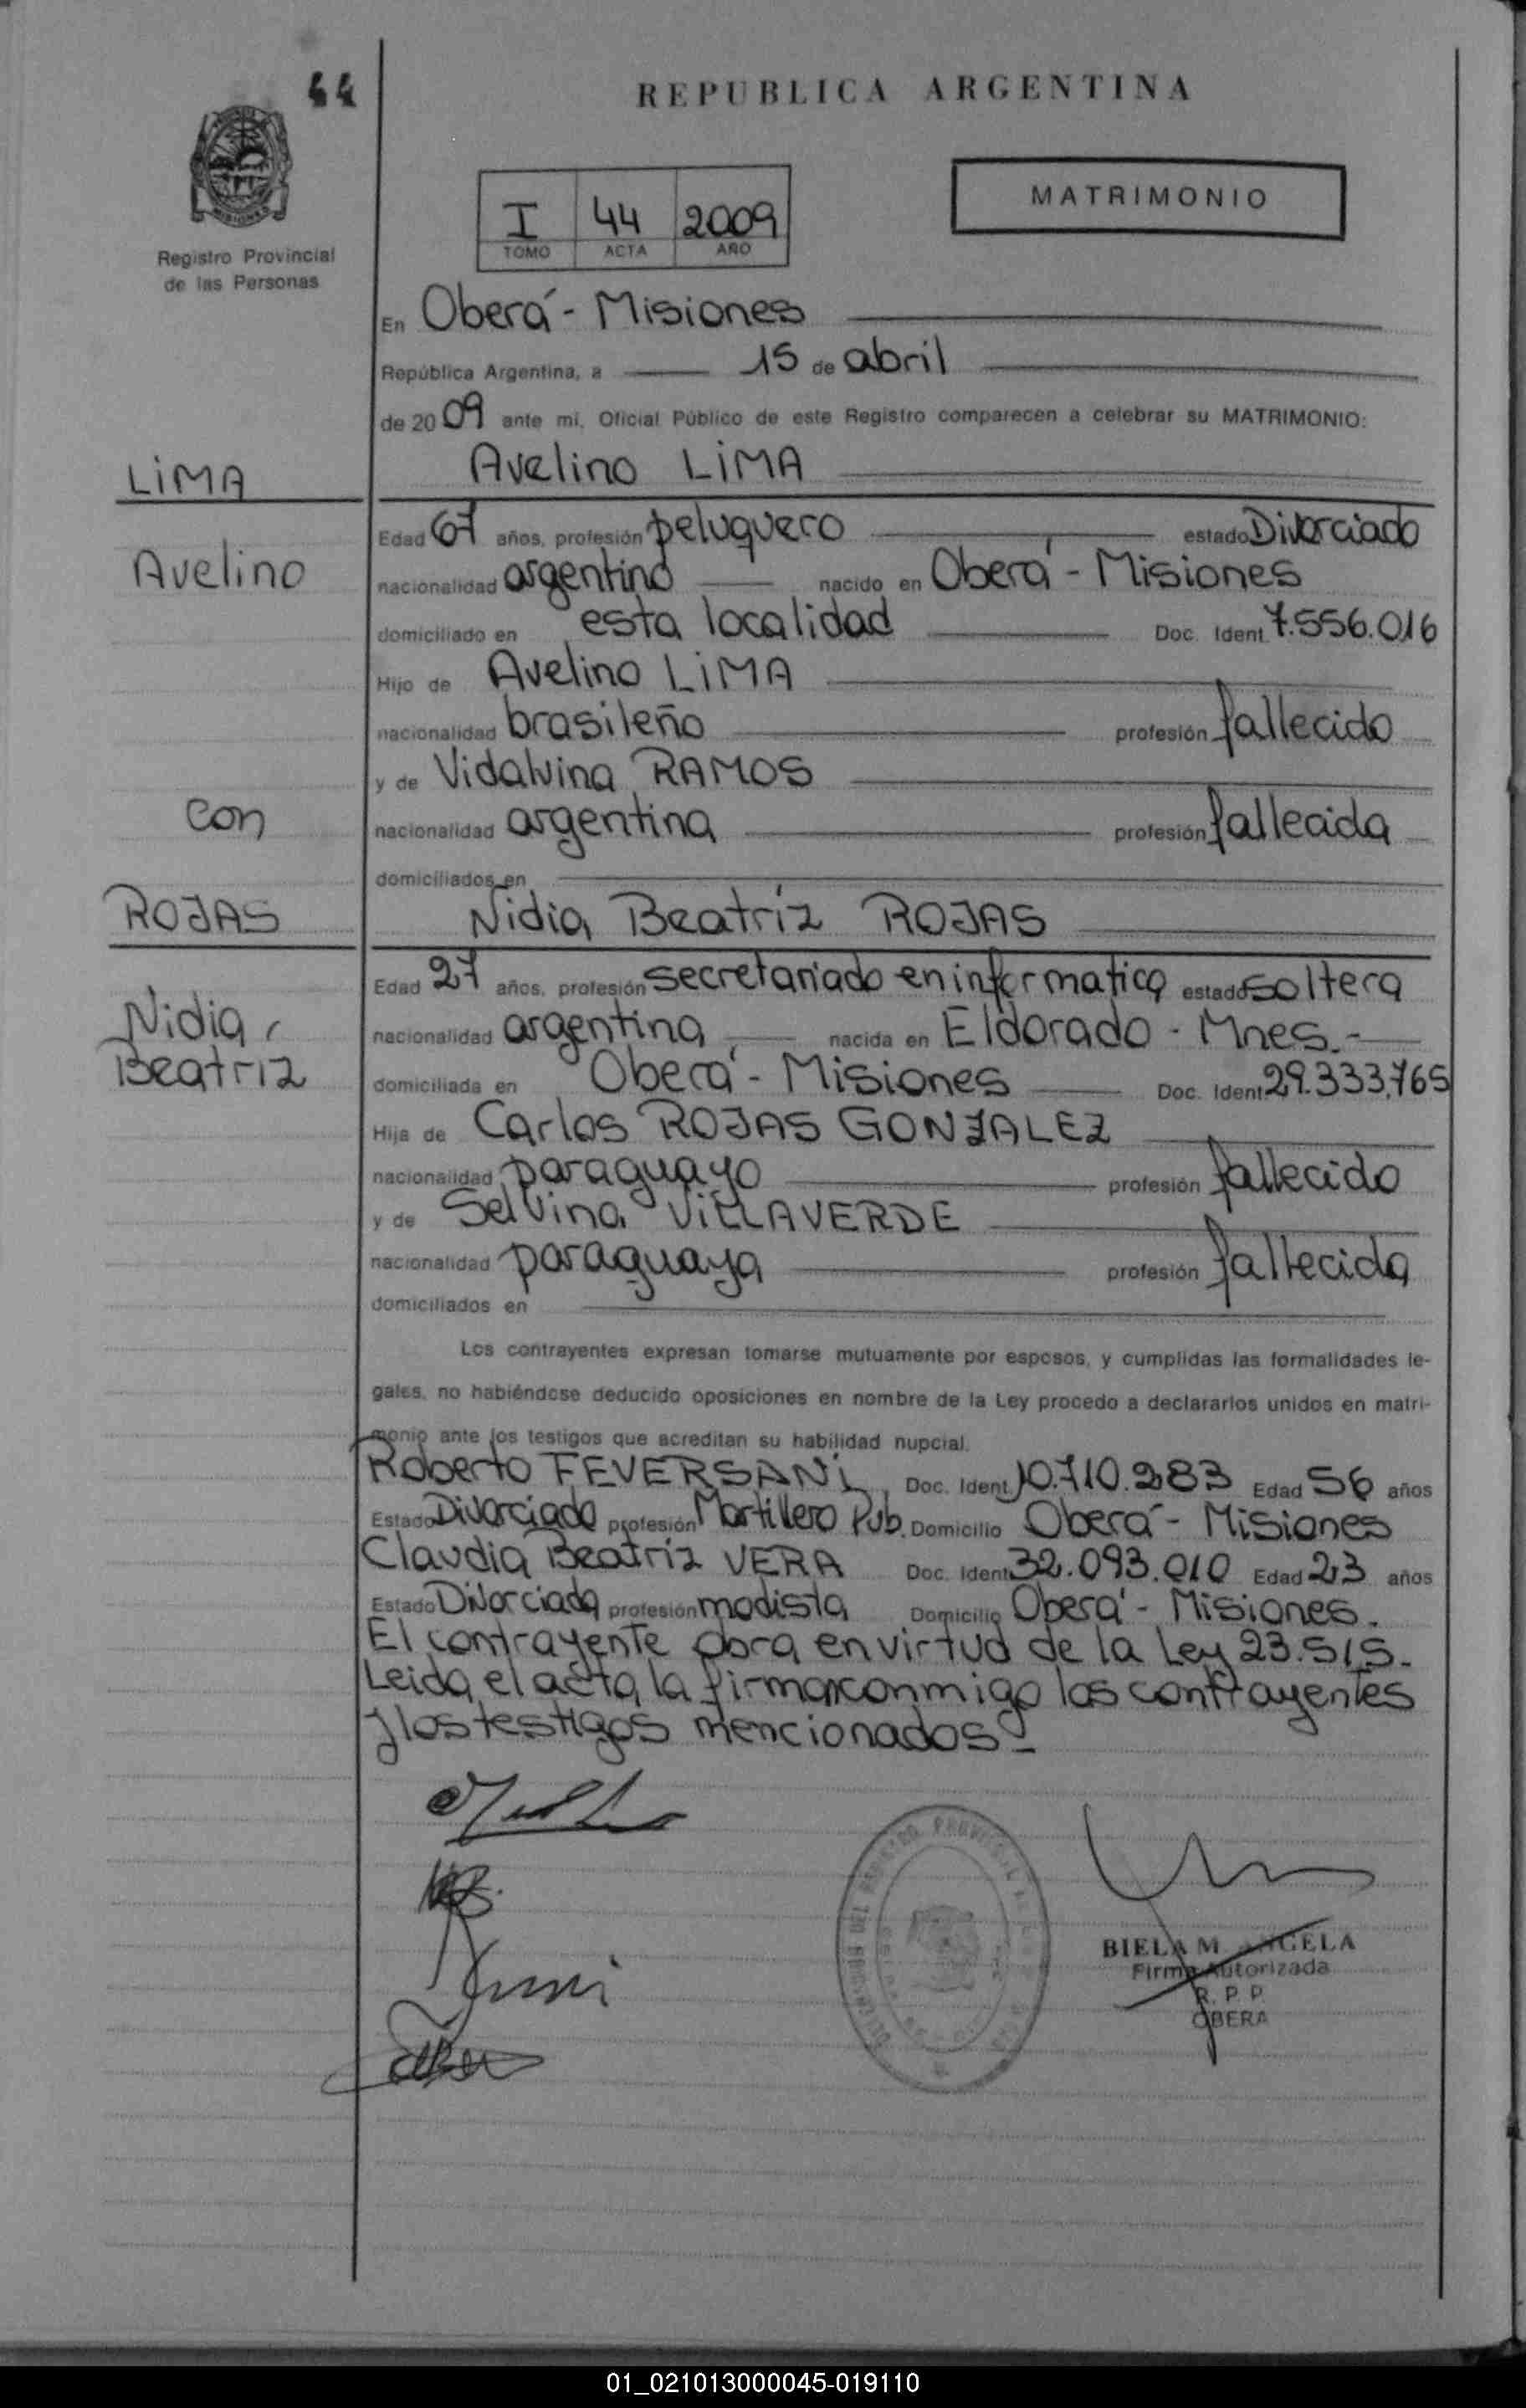 44
REPUBLICA ARGENTINA
MISIONES
Registro Provincial
de las Personas
I 44 2009
TOMO ACTA AÑO
MATRIMONIO
En Oberá - Misiones
República Argentina, a 15 de abril
de 2009 ante mi, Oficial Público de este Registro comparecen a celebrar su MATRIMONIO:
LIMA
Avelino LIMA
Edad 67 años, profesión peluquero estado Divorciado
Avelino
nacionalidad argentino nacido en Oberá - Misiones
domiciliado en esta localidad Doc. Ident. 7.556.016
Hijo de Avelino LIMA
nacionalidad brasileño profesión fallecido
y de Vidalvina RAMOS
con
nacionalidad argentina profesión fallecida
domiciliados en
ROJAS
Nidia Beatriz ROJAS
Edad 27 años, profesión secretariado en informatica estado soltera
Nidia
nacionalidad argentina nacida en Eldorado - Mnes.-
Beatriz
domiciliada en Oberá - Misiones Doc. Ident. 29.333.765
Hija de Carlos ROJAS GONZALEZ
nacionalidad paraguayo profesión fallecido
y de Selvina VILLAVERDE
nacionalidad paraguaya profesión fallecida
domiciliados en
Los contrayentes expresan tomarse mutuamente por esposos, y cumplidas las formalidades le-
gales, no habiéndose deducido oposiciones en nombre de la Ley procedo a declararlos unidos en matri-
monio ante los testigos que acreditan su habilidad nupcial.
Roberto FEVERSANI, Doc. Ident. 10.710.283 Edad 56 años
Estado Divorciado profesión Martillero Pub. Domicilio Oberá - Misiones
Claudia Beatriz VERA Doc. Ident. 32.093.010 Edad 23 años
Estado Divorciada profesión modista Domicilio Oberá - Misiones.
El contrayente obra en virtud de la Ley 23.515.-
Leida el acta la firman conmigo los contrayentes
y los testigos mencionados -
BIELA M ANGELA
Firma Autorizada
R. P. P.
OBERA
01_021013000045-019110